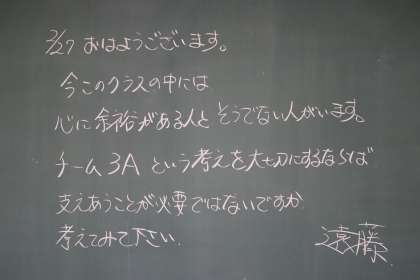 2/27 おはようございます。
今このクラスの中には
心に余裕がある人とそうでない人がいます。
チーム3Aという考えを大切にするならば
支えあうことが必要ではないですか
考えてみて下さい.
遠藤